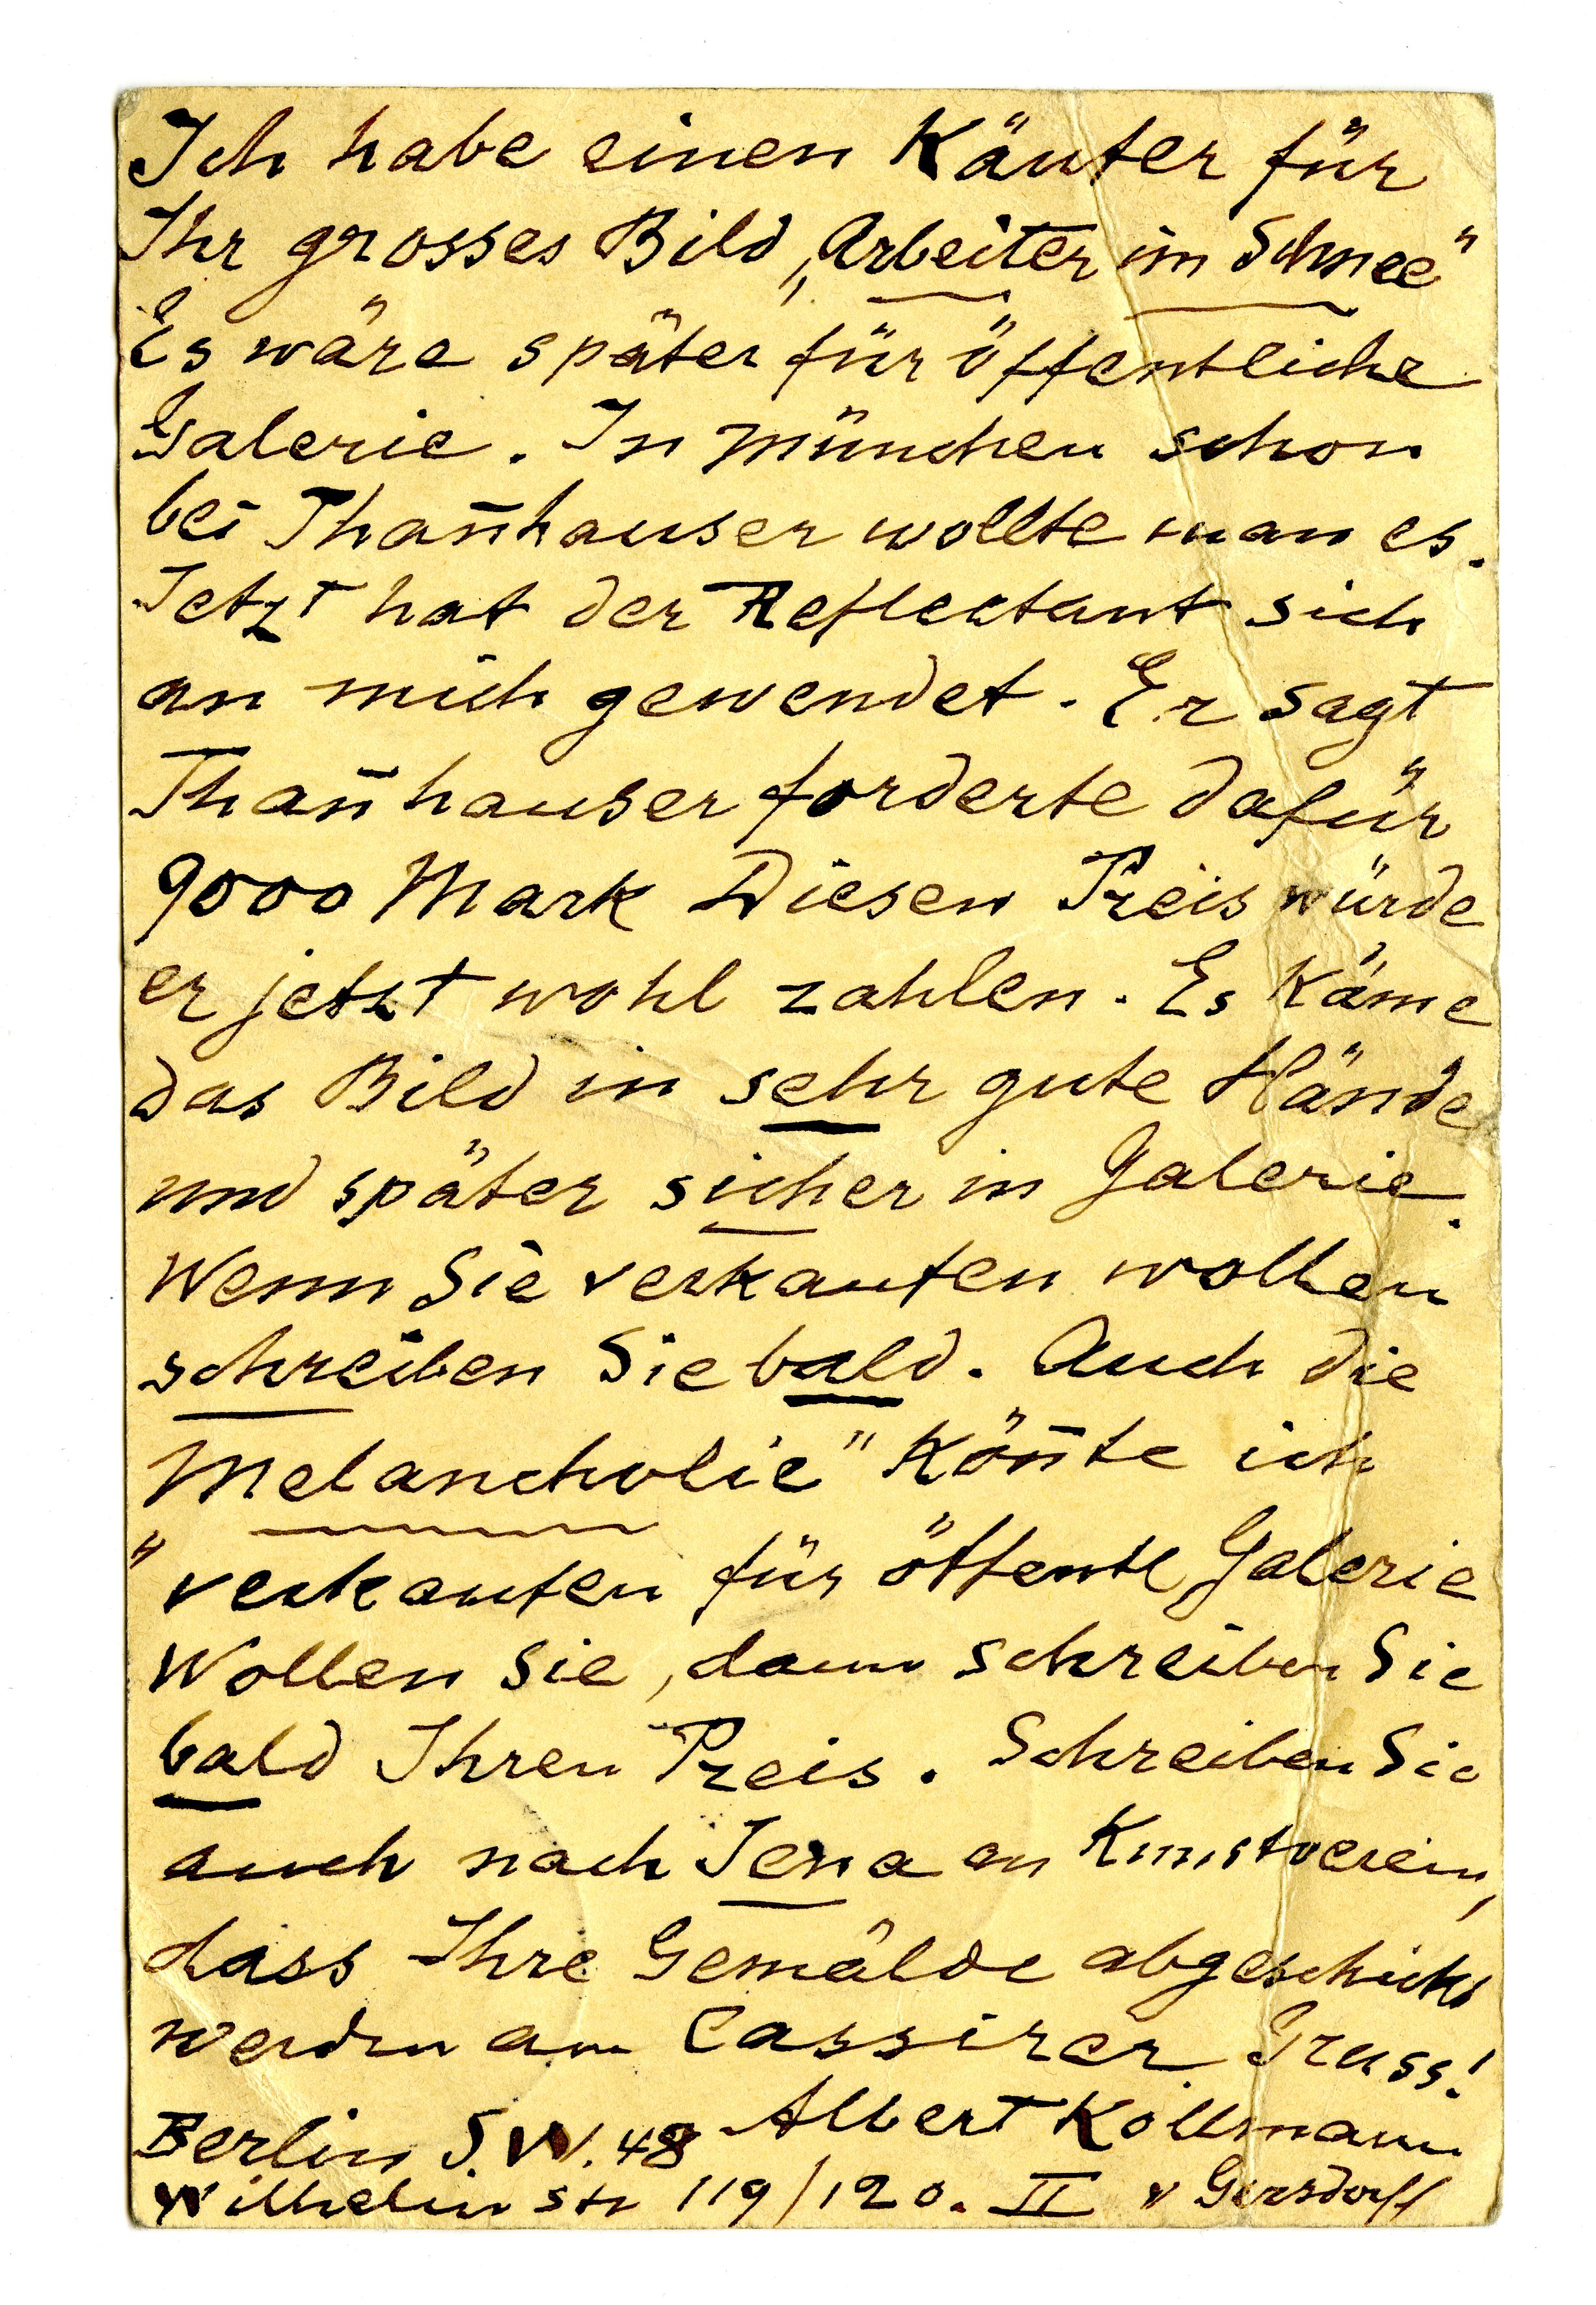 Ich habe einen Käufer für
Ihr grosses Bild „Arbeiter im Schnee"
Es wäre später für öffentliche
Galerie. In München schon
bei Than̄hauser wollte man es.
Jetzt hat der Reflectant sich
an mich gewendet. Er sagt
Than̄hauser forderte dafür
9000 Mark Diesen Preis würde
er jetzt wohl zahlen. Es käme
das Bild in sehr gute Hände
und später sicher in Galerie.
Wenn Sie verkaufen wollen
schreiben Sie bald. Auch die
„Melancholie" kön̄te ich
verkaufen für öffentl Galerie
Wollen Sie, dann schreiben Sie
bald Ihren Preis. Schreiben Sie
auch nach Jena an Kunstverein,
dass Ihre Gemälde abgeschickt
werden an Cassirer. Gruss!
Albert Kollmann
Berlin S.W. 48
Wilhelmstr 119/120. II v Gersdorff